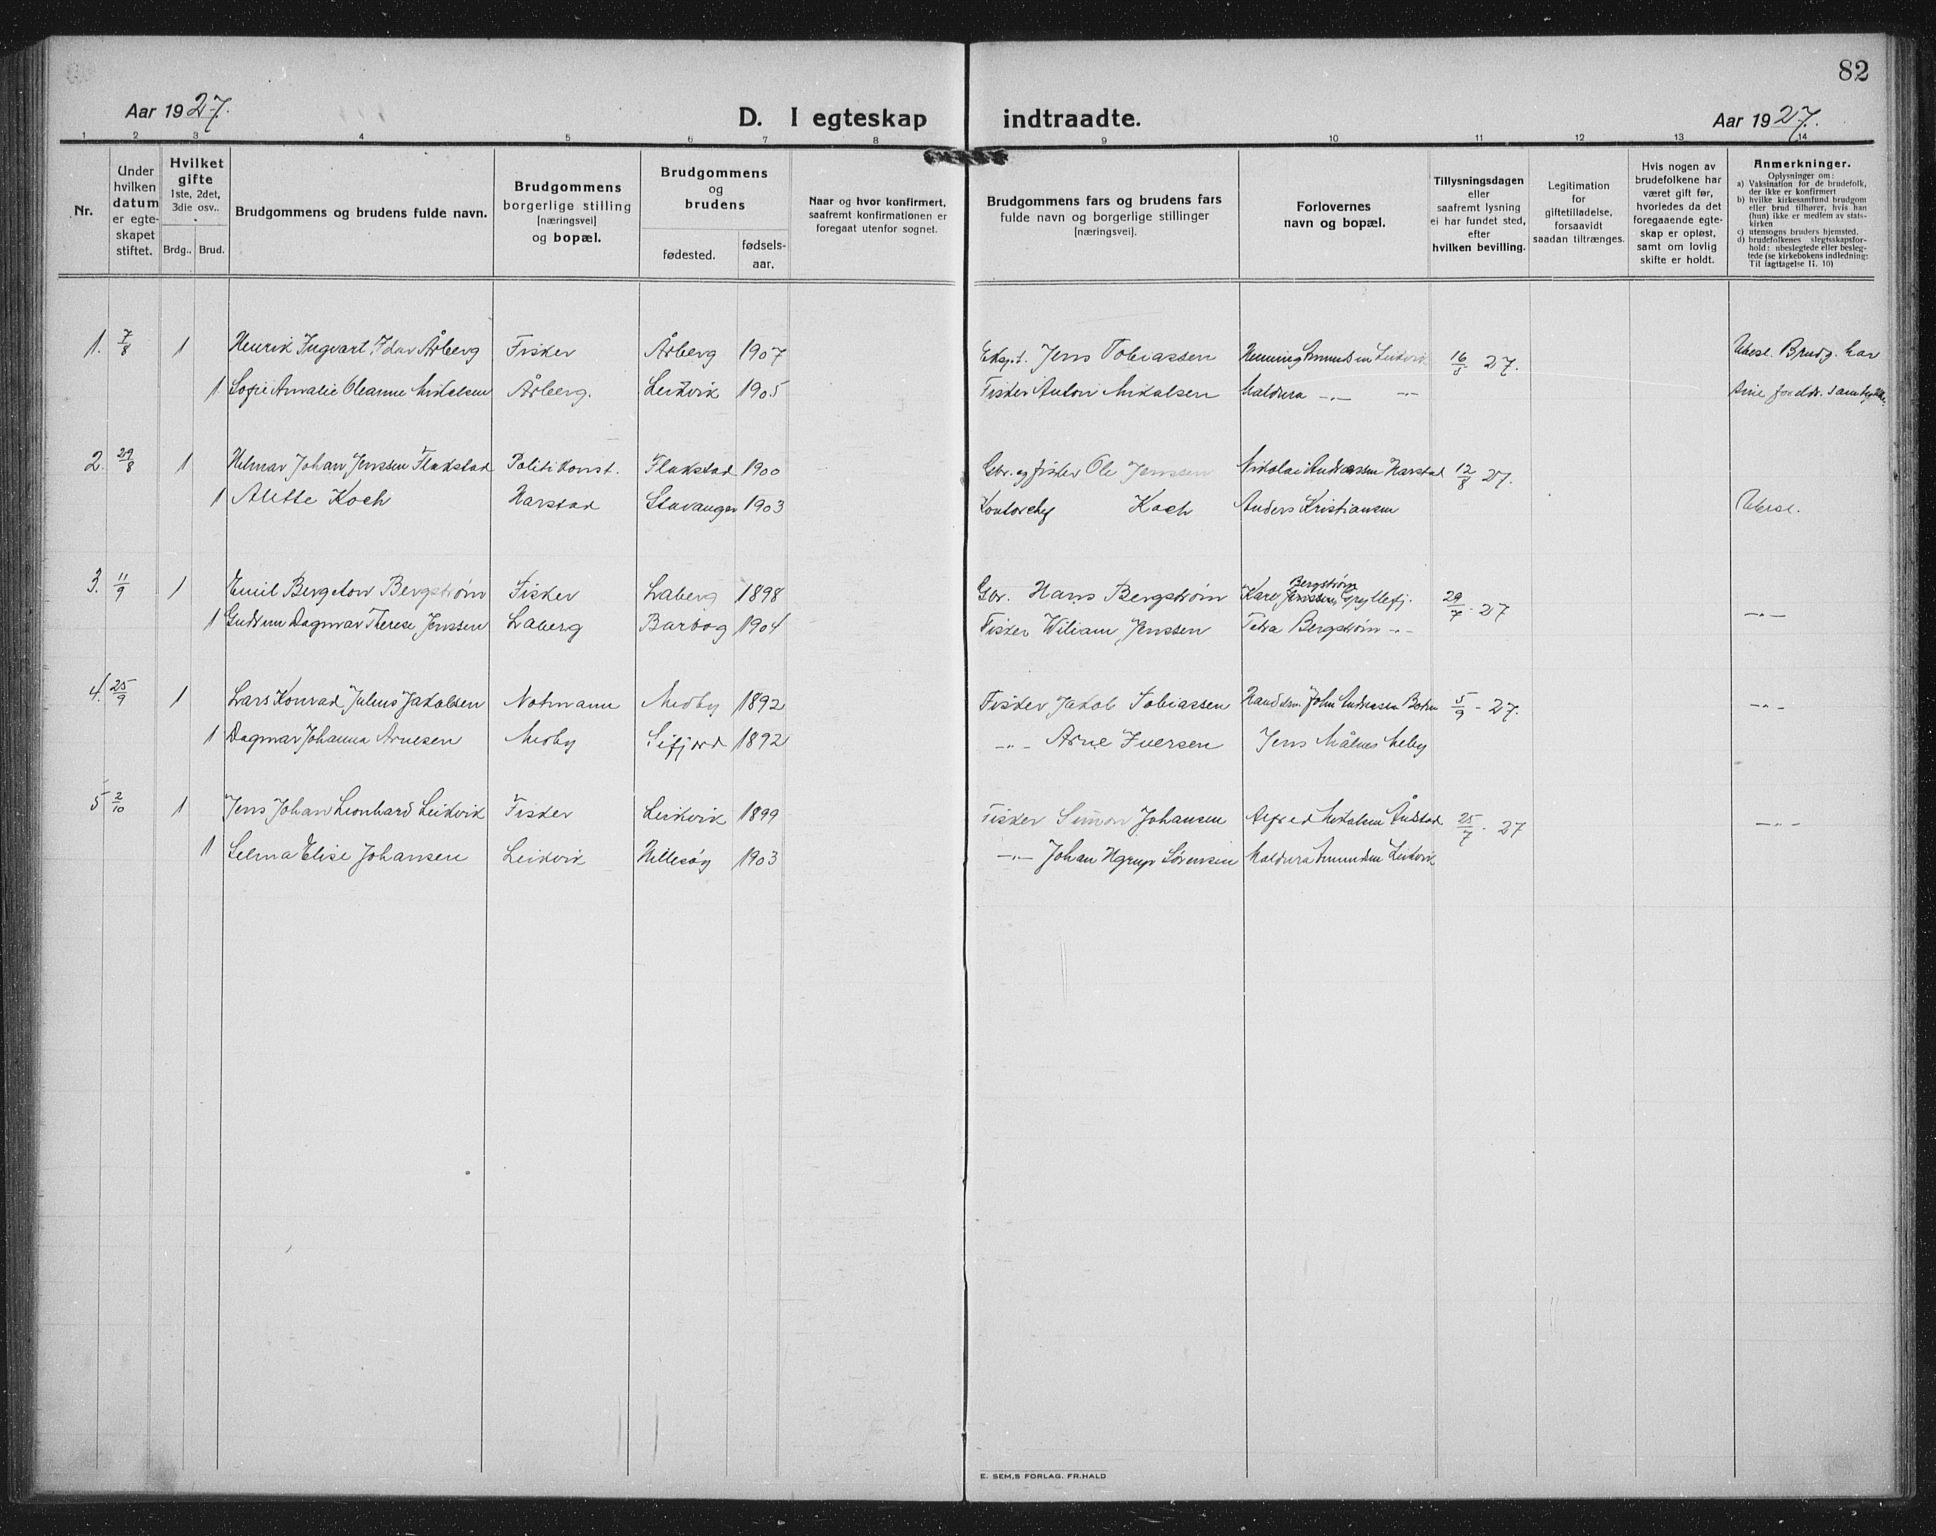 82
Aar 1927.
D. I egteskap indtraadte.
Aar 1927.
1 2 3 4 5 6 7 8 9 10 11 12 13 14
Nr.
Under hvilken datum er egteskapet stiftet.
Hvilket gifte
1ste, 2det, 3die osv..
Brdg.. Brud.
Brudgommens og brudens fulde navn.
Brudgommens borgerlige stilling [næringsvei] og bopæl.
Brudgommens og brudens
fødested.
fødsels-aar.
Naar og hvor konfirmert, saafremt konfirmationen er foregaat utenfor sognet.
Brudgommens fars og brudens fars fulde navn og borgerlige stillinger [næringsvei].
Forlovernes navn og bopæl.
Tillysningsdagen eller saafremt lysning ei har fundet sted, efter hvilken bevilling.
Legitimation for giftetilladelse, forsaavidt saadan tiltrænges.
Hvis nogen av brudefolkene har været gift før, hvorledes da det foregaaende egteskap er opløst, samt om lovlig skifte er holdt.
Anmerkninger.
Oplysninger om:
a) Vaksination for de brudefolk, der ikke er konfirmert
b) hvilke kirkesamfund brudgom eller brud tilhører, hvis han (hun) ikke er medlem av statskirken
c) utensogns bruders hjemsted.
d) brudefolkenes slegtsskapsforhold: ubeslegtede eller beslegtede (se kirkebokens indledning: Til iagttagelse li. 10)
1. 7/8 1 Henrik Ingvart Idar Årberg Fisker Årberg 1907 Eksp.t. Jens Tobiassen Henning Amundsen Leikvik 16/5 27. Ubesl. Brudg. har
1 Sofie Amalie Oleanne Mikalsen Årberg. Leikvik 1905 Fisker Anton Mikalsen Haldura -„- -„- sine foreldr.
2. 29/8 1 Hilmar Johan Jenssen Flakstad Politikonst. Flakstad 1900 Gbr. og fisker Ole Jenssen Nikolai Andreassen Harstad 12/8 27.
1 Alette Koch Harstad Stavanger 1903 Kontorchef Koch Anders Kristiansen Ubesl.
3. 11/9 1 Emil Bergeton Bergstrøm Fisker Laberg 1898 Gbr. Hans Bergstrøm Kare Jenssen Bergstrøm Gryllefj. 29/7 - 27
1 Gudrun Dagmar Therese Jenssen Laberg Barbog 1904 Fisker Wiliam Jenssen Petra Bergstrøm -„- -„-
4. 25/9 1 Lars Konrad Julius Jakobsen Notmann Medby 1892 Fisker Jakob Tobiassen Handelsm. John Andreasen Botn 5/9 - 27. -„-
1 Dagmar Johanna Arnesen Medby Sifjord 1892 -„- Arne Iversen Jens Målnes Meby
5 2/10 1 Jens Johan Leonhard Leikvik Fisker Leikvik 1899 Fisker Simon Johansen Alfred Mikalsen Åndstad 25/7 - 27 -„-
1 Selma Elise Johansen Leikvik Hillesøy 1903 -„- Johan Sørensen Haldura Amundsen Leikvik
E. SEM,S FORLAG. FR.HALD